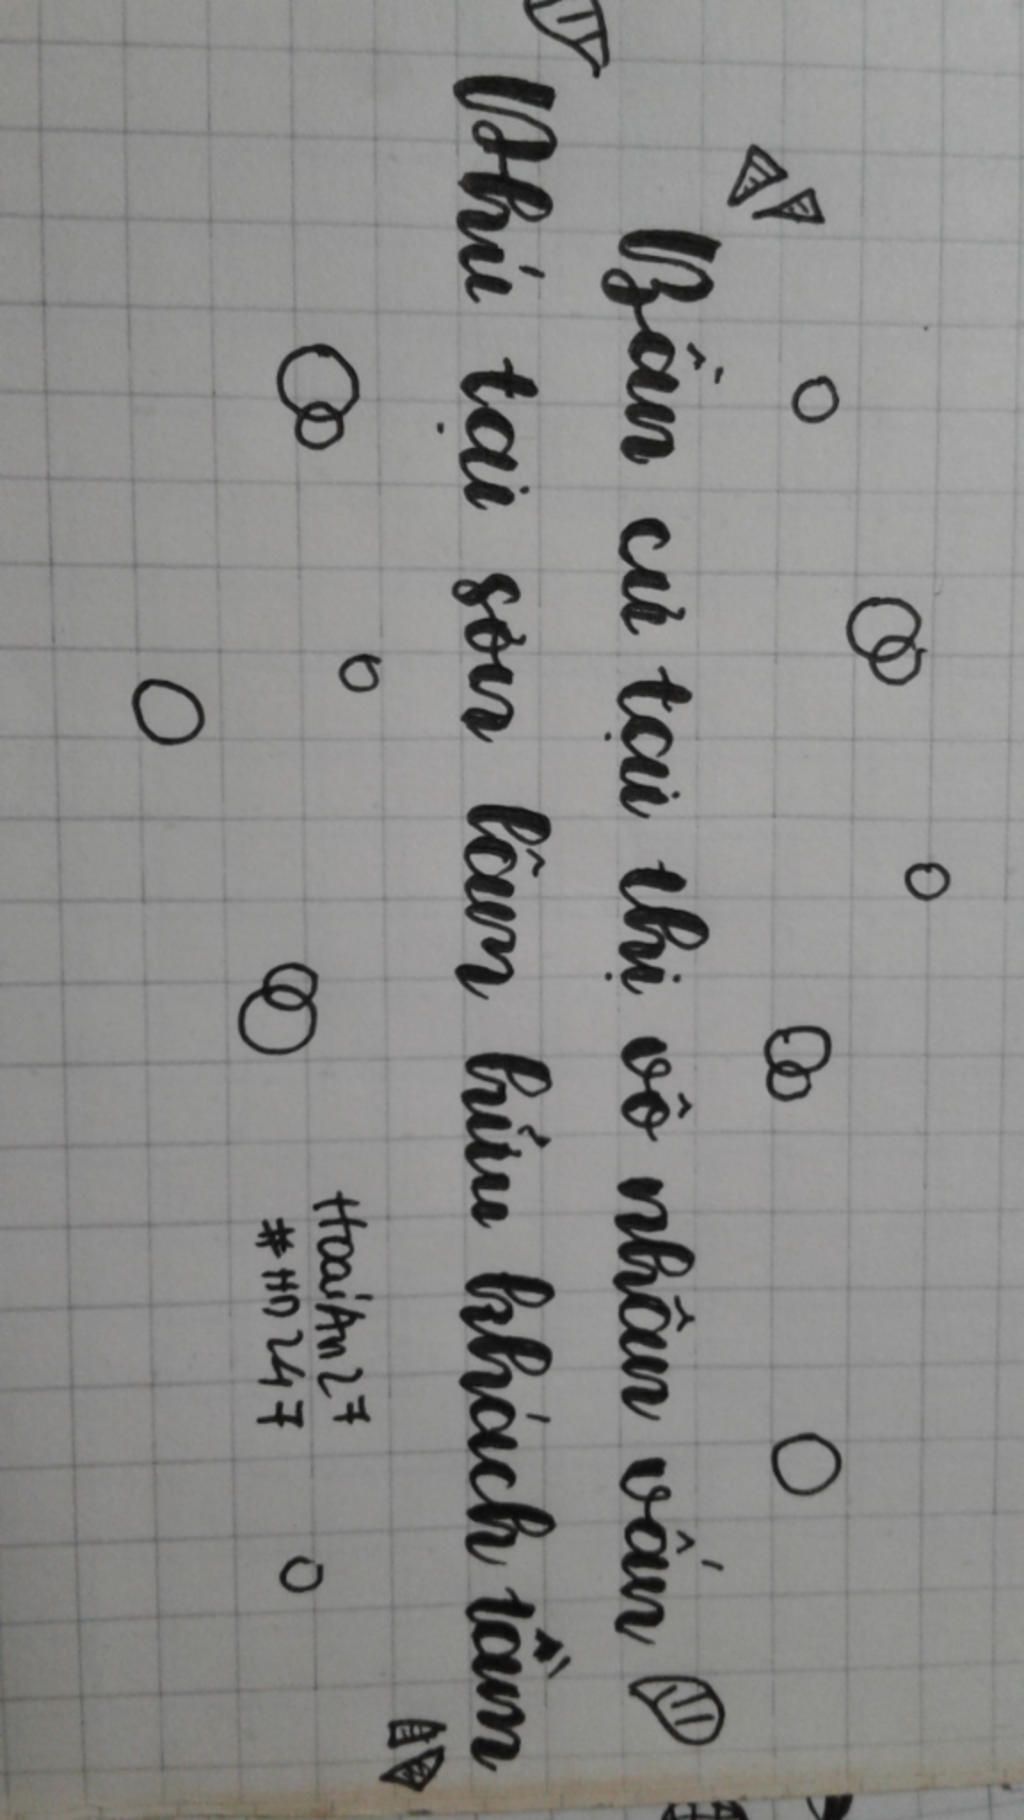 Bần cư tại thị vô nhân vấn
Phú tại sơn lâm hữu khách tầm
HoaiAn27
#HD247